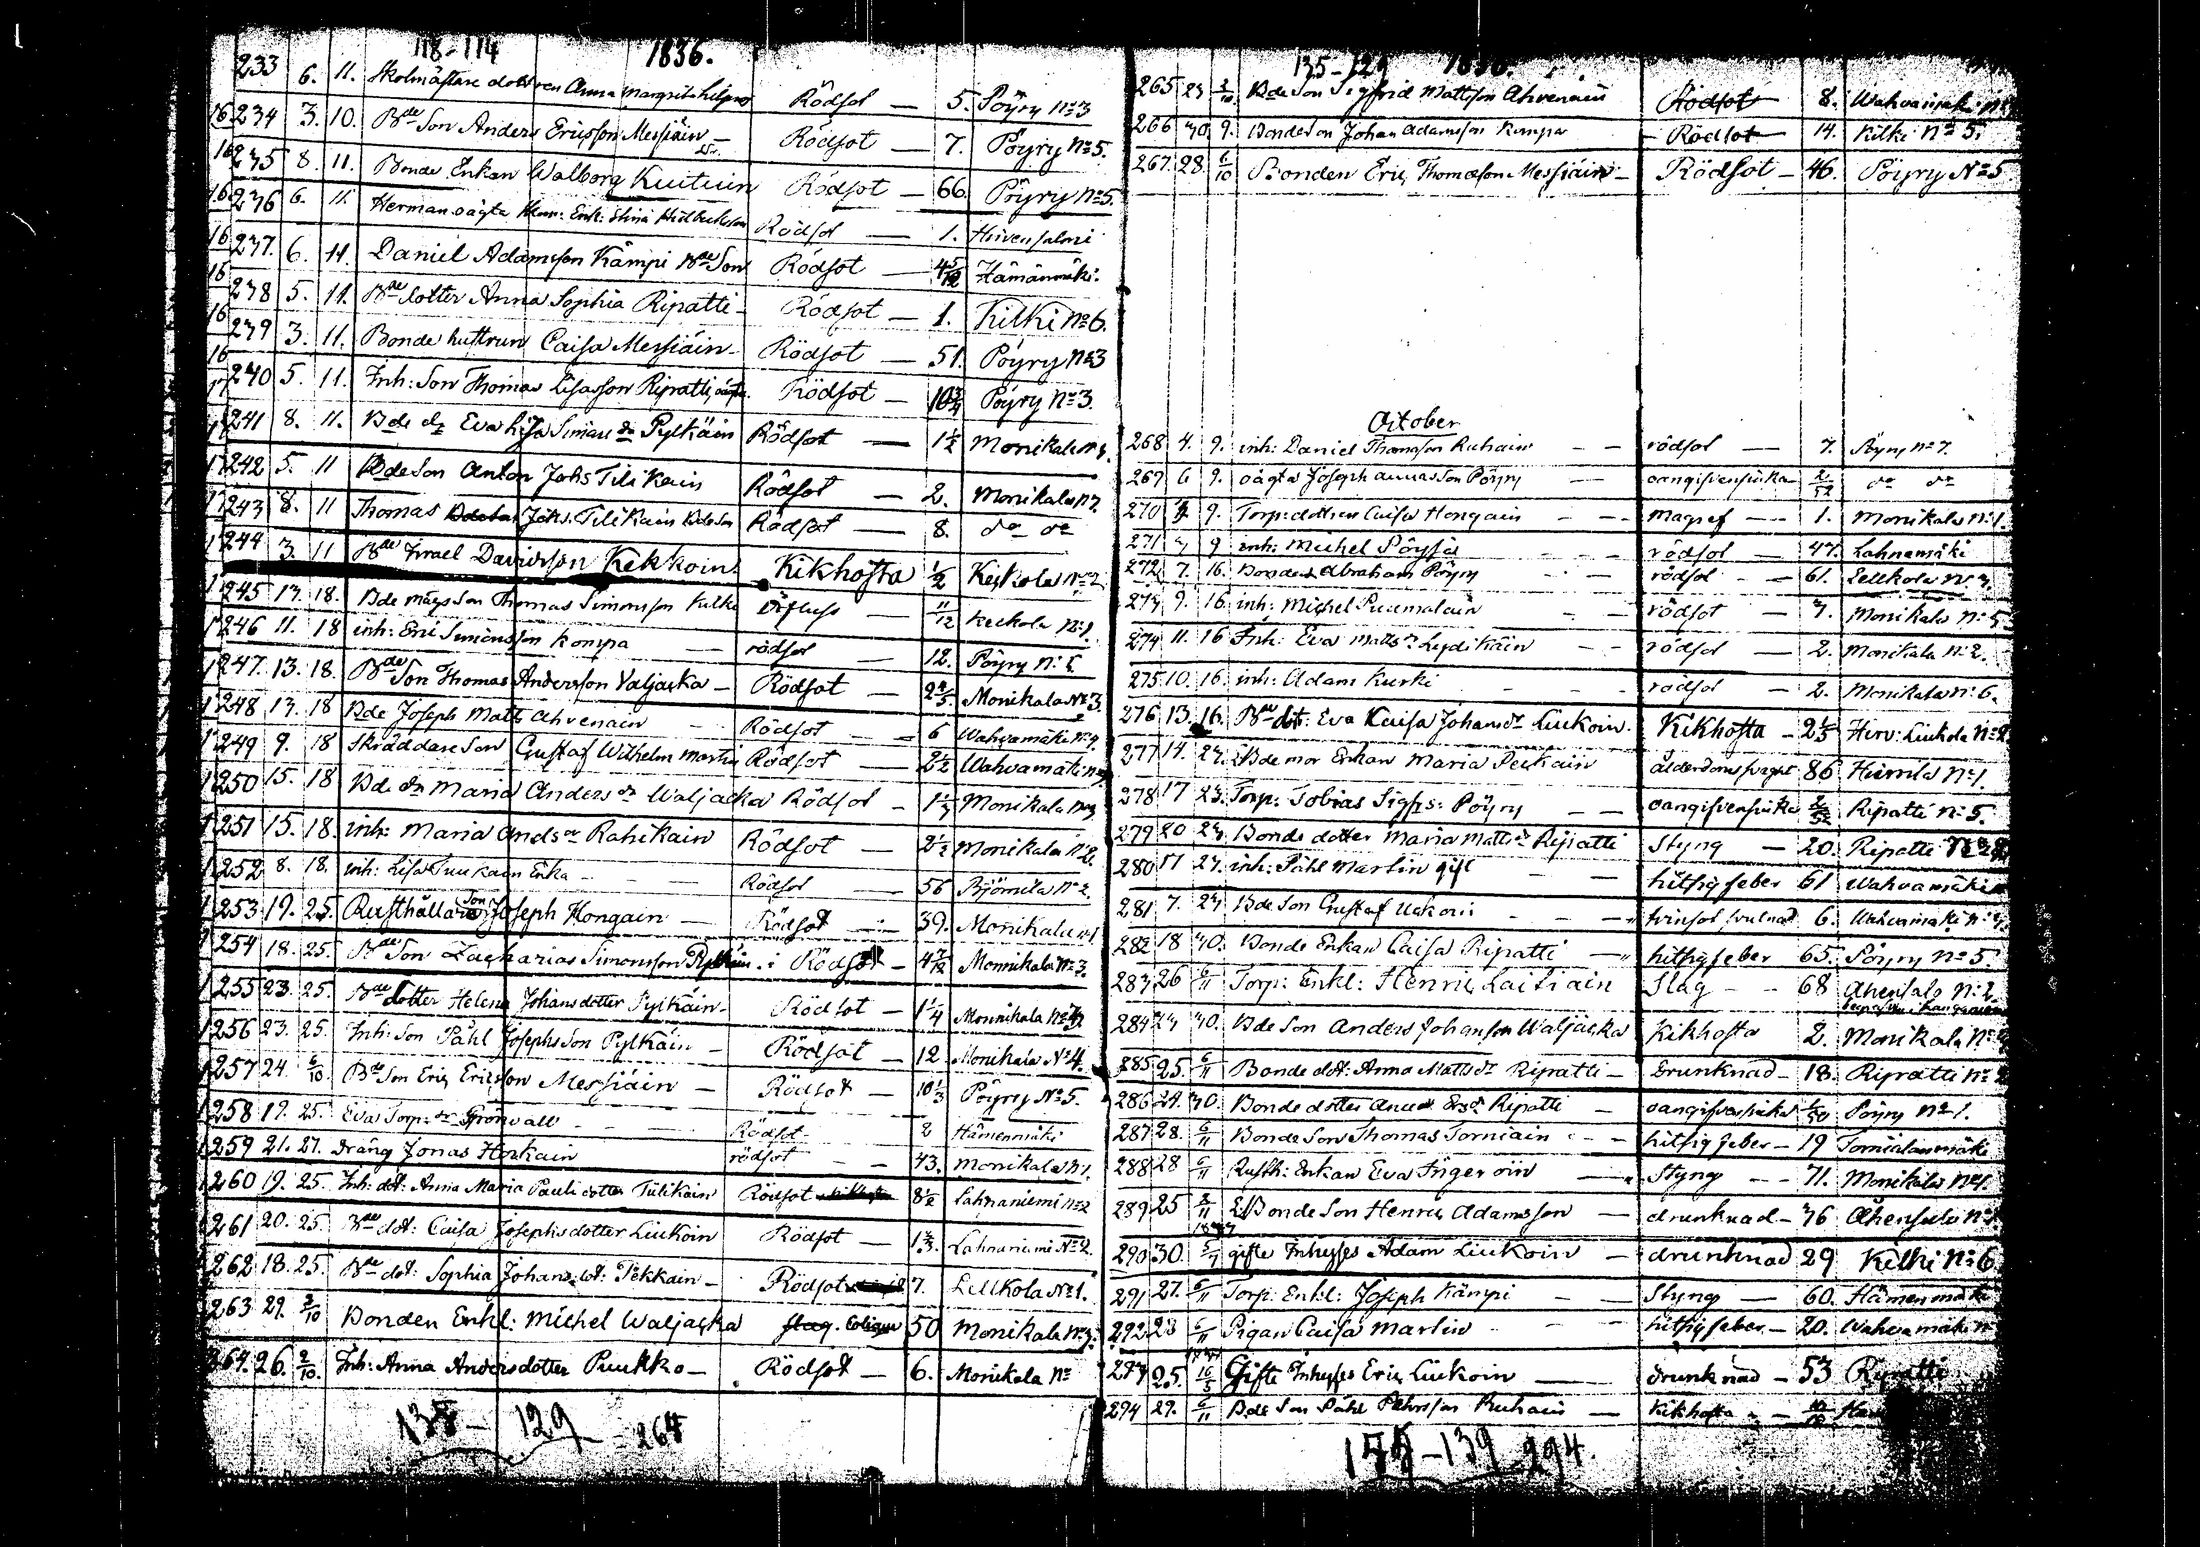 118-114 1836.
233 6. 11. Skolmästare dottren Anna Margreta Rödsot — 5. Pöyry No 3
234 3. 10. Bde Son Anders Ericsson Messiäin — Rödsot — 7. Pöyry No 5.
235 8. 11. Bonde Enkan Walborg Kuituin Rödsot — 66. Pöyry No 5.
236 6. 11. Rödsot — 1. Hirvensalmi
237. 6. 11. Daniel Adamsson Kämpi Bde Son Rödsot — Hämänmäki.
238 5. 11. Bde dotter Anna Sophia Ripatti — Rödsot — 1. Kilki No 6.
239 3. 11. Bonde hustrun Caisa Messiäin — Rödsot — 51. Pöyry No 3
240 5. 11. Inh: Son Thomas Lisasson Ripatti, oägta. Rödsot — 10 3/4 Pöyry No 3.
241 8. 11. Bde dr Eva Lisa Simons dr Pylkäin Rödsot — 1 1/2 Monikala
242 5. 11 Bde Son Anton Johs Tilikain Rödsot — 2. Monikala
243 8. 11 Thomas Johs. Tilikain Bde Son Rödsot — 8. do do
244 3. 11 Bde Israel Davidsson Kekkoin Kikhosta 1/2 Keskola No 2.
245 17. 18. Bde mågs Son Thomas Simonsson Kilki 11/12 Keckola No 1.
246 11. 18 inh: Eric Simonsson Kompa — rödsot — 12. Pöyry No 5.
247. 13. 18. Bde Son Thomas Andersson Valjacka — Rödsot — Monikala No 3.
248 17. 18 Bde Joseph Matts Ahvenain Rödsot — 6 Wahvamäki No 4.
249 9. 18 Skräddare Son Gustaf Wilhelm Martin Rödsot — 2 1/2 Wahvamäki
250 15. 18 Bde dr Maria Anders dr Waljacka Rödsot — Monikala No 3
251 15. 18. inh: Maria Ands dr Rahikain Rödsot — 2 1/2 Monikala No 2.
252 8. 18. inh: Lisa Tuukain Enka Rödsot — 56 Björnila No 2.
253 19. 25. Rusthållare Son Joseph Hongain — Rödsot — 39. Monikala No 1
254 18. 25. Bde Son Zacharias Simonsson Pylkäin Rödsot — 4 7/12 Monnikala No 3.
255 23. 25. Bde dotter Helena Johansdotter Pylkäin — Rödsot — 1 1/4 Monnikala
256 23. 25. Inh: Son Påhl Josephsson Pylkäin — Rödsot — 12 Monikala No 4.
257 24. 6/10 Bde Son Eric Ericsson Messiäin — Rödsot — 10 1/3 Pöyry No 5.
258 19. 25. Eva Torp: dr Grönvall Rödsot — 2 Hämenmäki
259 21. 27. Dräng Jonas Horkain rödsot — 43. Monikala No 1.
260 19. 25. Inh: dot: Anna Maria Pauls dotter Tilikain Rödsot 8 1/2 Lahnaniemi No 2
261 20. 25. Bde dot: Caisa Josephsdotter Liukoin Rödsot — 1 2/3. Lahnaniemi No 2.
262 18. 25. Bde dot: Sophia Johans dot: Pekkain — Rödsot 7. Lellkola No 1.
263 29. 2/10 Bonden Enkl: Michel Waljacka 50 Monikala No 3.
264. 26. 2/10. Inh: Anna Andersdotter Puukko — Rödsot — 6. Monikala No
135 — 129 — 264
135-129 1836.
265 23 2/10 Bde Son Sigfrid Mattsson Ahvenain Rödsot — 8. Wahvamäki
266 30. 9. Bondeson Johan Adamsson Kompa — Rödsot — 14. Kilki No 5.
267. 28. 6/10 Bonden Eric Thomasson Messiäin — Rödsot — 46. Pöyry No 5
October
268 4. 9. inh: Daniel Thomsson Ruhain — rödsot — 7. Pöyry No 7.
269 6 9. oägta Joseph Annasson Pöyry — oangifven sjuka 2/52 do do
270 9. Torp: dottren Caisa Hongain — magref — 1. Monikala No 1.
271 9 inh: Michel Pöysä — rödsot — 47. Lahnamäki
272 7. 16. Bonden Abraham Pöyry — rödsot — 61. Lellkola
273 9. 16. inh: Michel Puumalain — rödsot — 7. Monikala No 5.
274 11. 16 Inh: Eva Matts dr Lydikäin — rödsot — 2. Monikala No 2.
275 10. 16. inh: Adam Kurki — rödsot — 2. Monikala No 6.
276 13. 16. Bde dot: Eva Caisa Johans dr Liukoin. Kikhosta — Hirv: Liukola No 2
277 14. 23. Bde mor Enkan Maria Peckain ålderdoms svaght 86 Huirila No 1.
278 17 23. Torp: Tobias Sigfrs: Pöyry — oangifven sjuka Ripatti No 5.
279 20 23. Bonde dotter Maria Matts dr Ripatti Styng — 20. Ripatti
280 17 23. inh: Påhl Martin gift — hitsig feber 61 Wahvamäki
281 7. 23 Bde Son Gustaf Uckoin — 6. Wahvamäki
282 18 30. Bonde Enkan Caisa Ripatti — hitsig feber 65. Pöyry No 5.
283 26 6/11 Torp: Enkl: Henric Laitiain Slag — 68 Ahensalo No 2.
284 23 30. Bde Son Anders Johansson Waljacka Kikhosta 2. Monikala
285 25. 6/11 Bonde dot: Anna Matts dr Ripatti — Drunknad — 18. Ripatti No 2
286 24. 30. Bonde dotter Ripatti — oangifven sjuka Pöyry No 1.
287 28. 6/11 Bonde Son Thomas Torniain — hitsig feber — 19 Tornialanmäki
288 28 6/11 Rusth: Enkan Eva Ingeroin — Styng — 71. Monikala No 1.
289 25 Bonde Son Henric Adamsson — drunknad — 36 Ahensalo
290 30. gifte Inhyses Adam Liukoin — drunknad 29 Kilki No 6
291 27. 6/11 Torp: Enkl: Joseph Kämpi — Styng — 60. Hämenmäki
292 23 6/11 Pigan Caisa Martin hitsig feber — 20. Wahvamäki
293 25. Gifte Inhyses Eric Liukoin — drunknad — 53 Ripatti
294 29. 6/11 Bde Son Påhl Pehrsson Ruhain — Kikhosta
155-139-294.